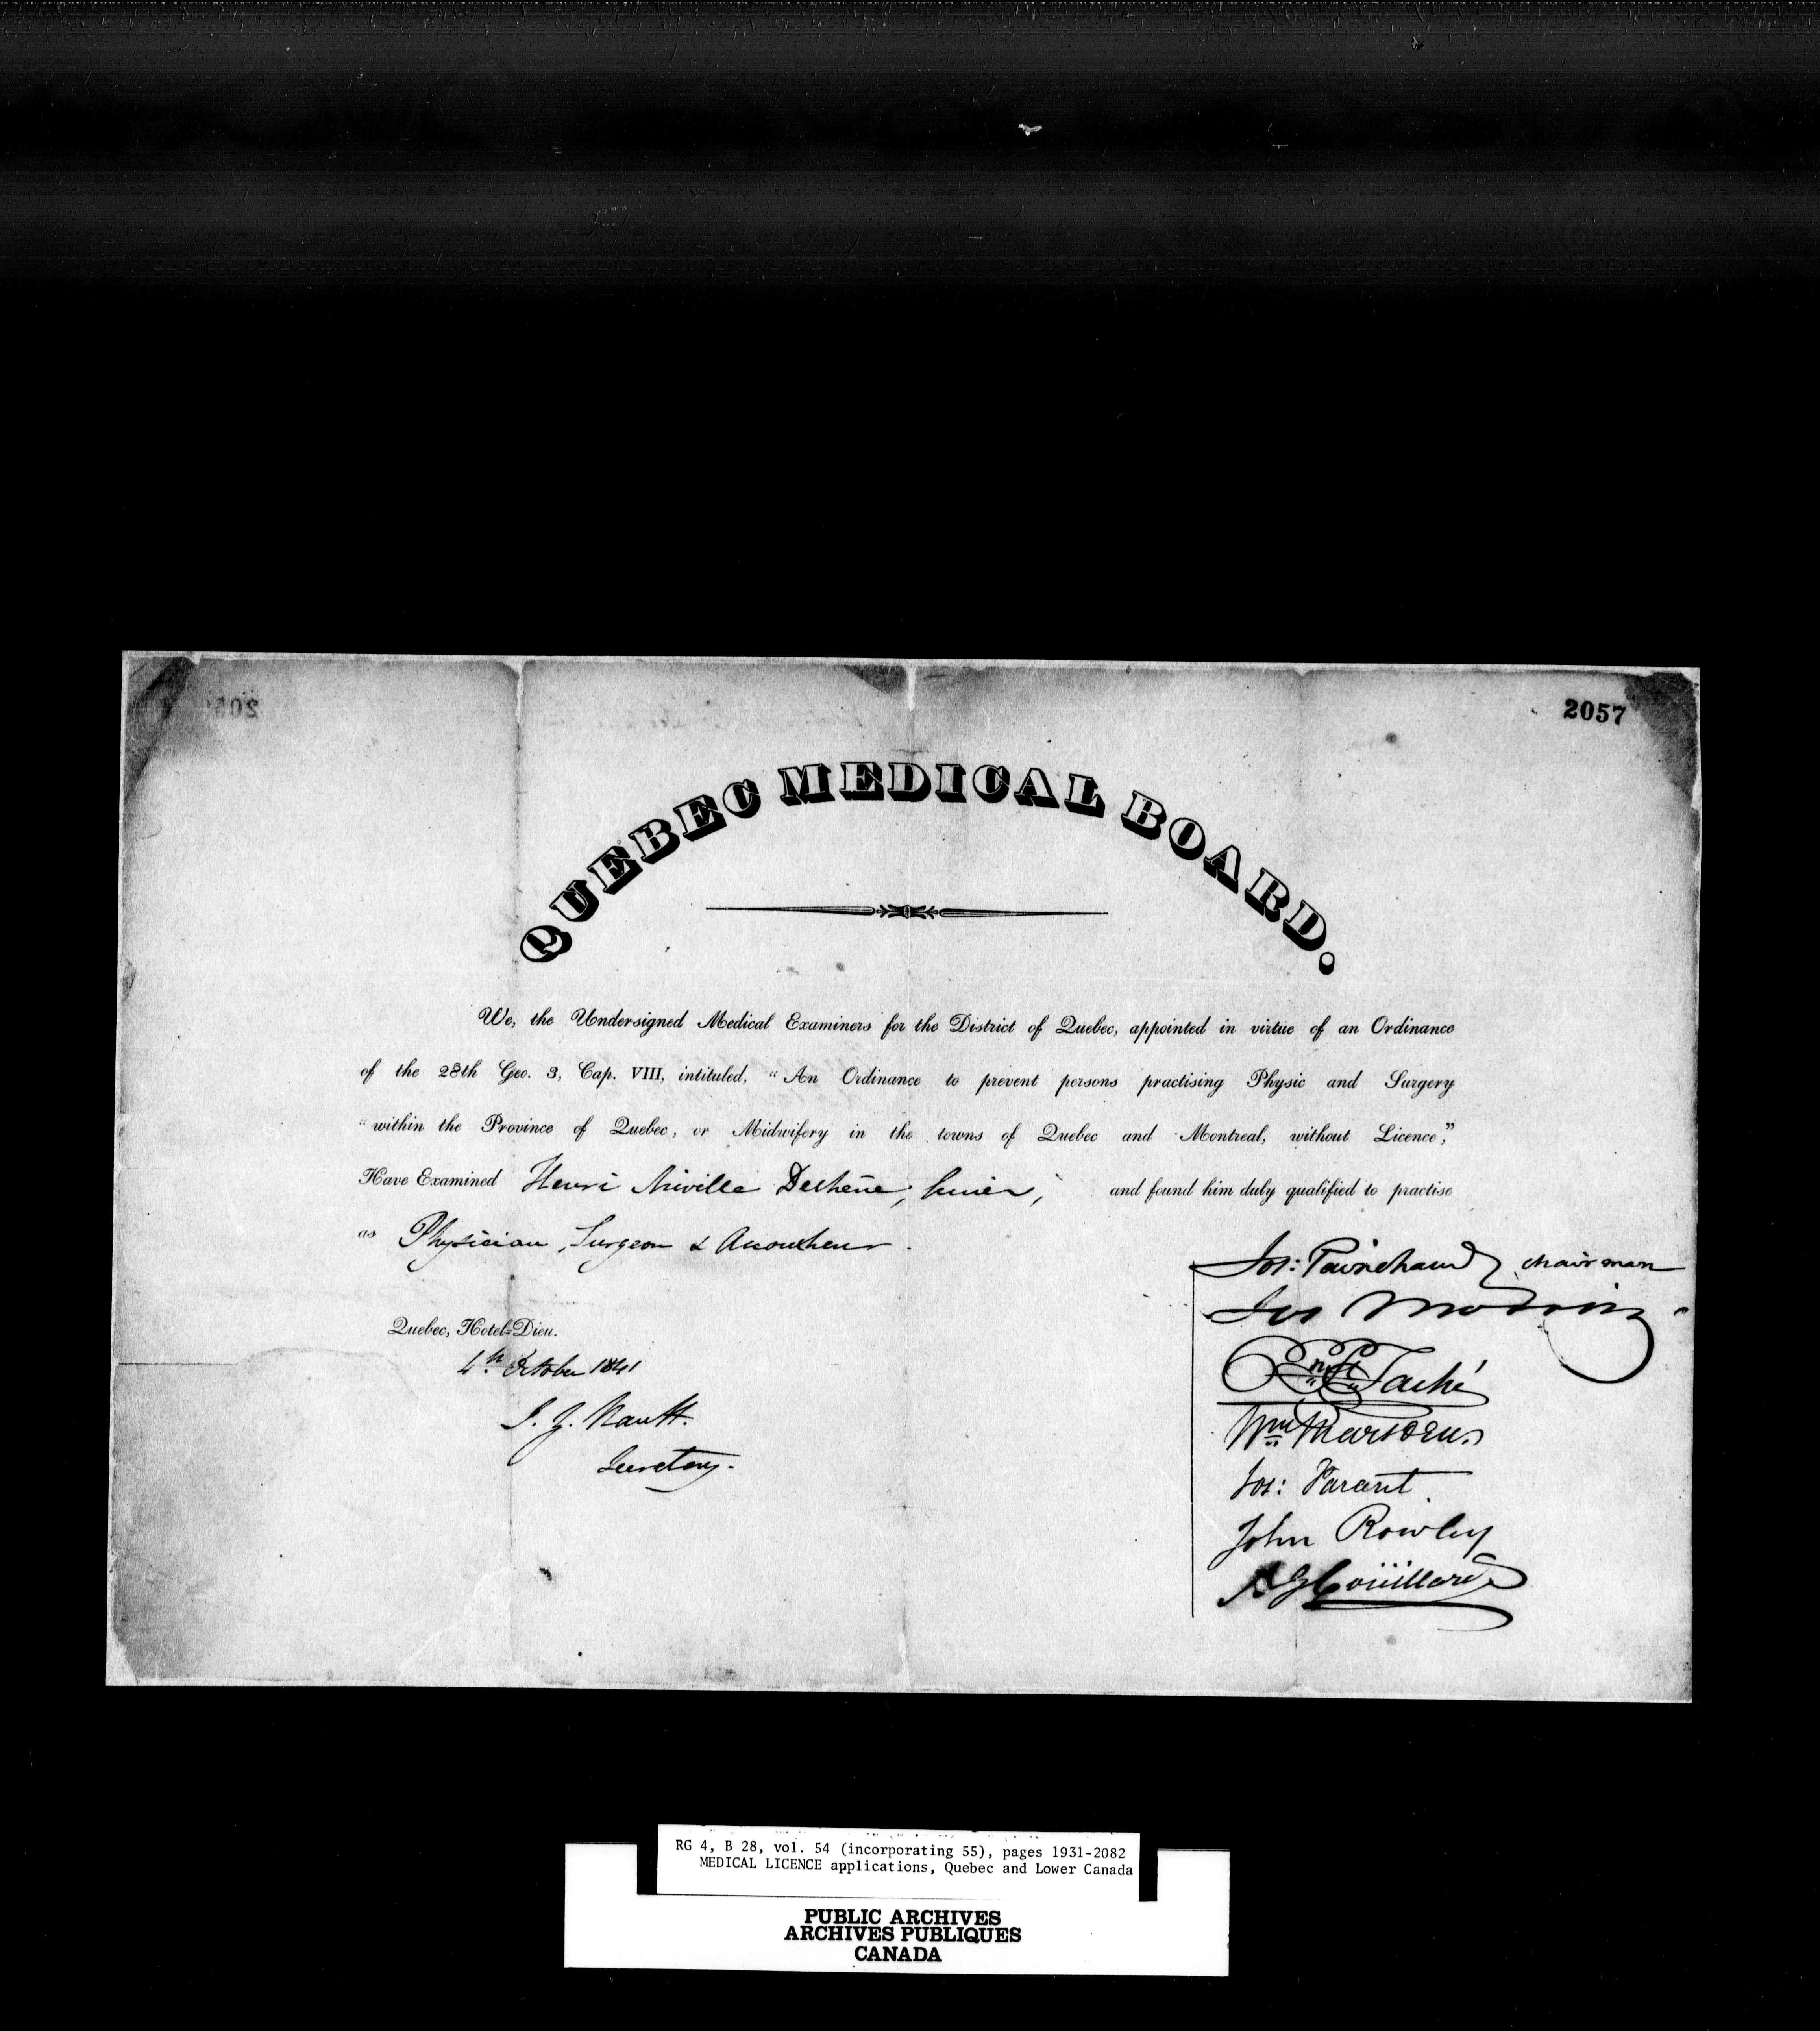 2057
QUEBEC MEDICAL BOARD.
We, the Undersigned Medical Examiners for the District of Quebec, appointed in virtue of an Ordinance
of the 28th Geo. 3, Cap. VIII, intituled, “An Ordinance to prevent persons practising Physic and Surgery
“within the Province of Quebec, or Midwifery in the towns of Quebec and Montreal, without Licence,”
Have Examined Henri Miville Deshêne, and found him duly qualified to practise
as Physician, Surgeon & Accoucheur.
Jos: Painchaud chairman
Jos Morrin
Quebec, Hotel-Dieu.
4th October 1841
Taché
J. Z. Nault.
Wm Marsden.
Secretary.
Jos: Parant
John Rowley
A G Coüillard
RG 4, B 28, vol. 54 (incorporating 55), pages 1931-2082
MEDICAL LICENCE applications, Quebec and Lower Canada
PUBLIC ARCHIVES
ARCHIVES PUBLIQUES
CANADA